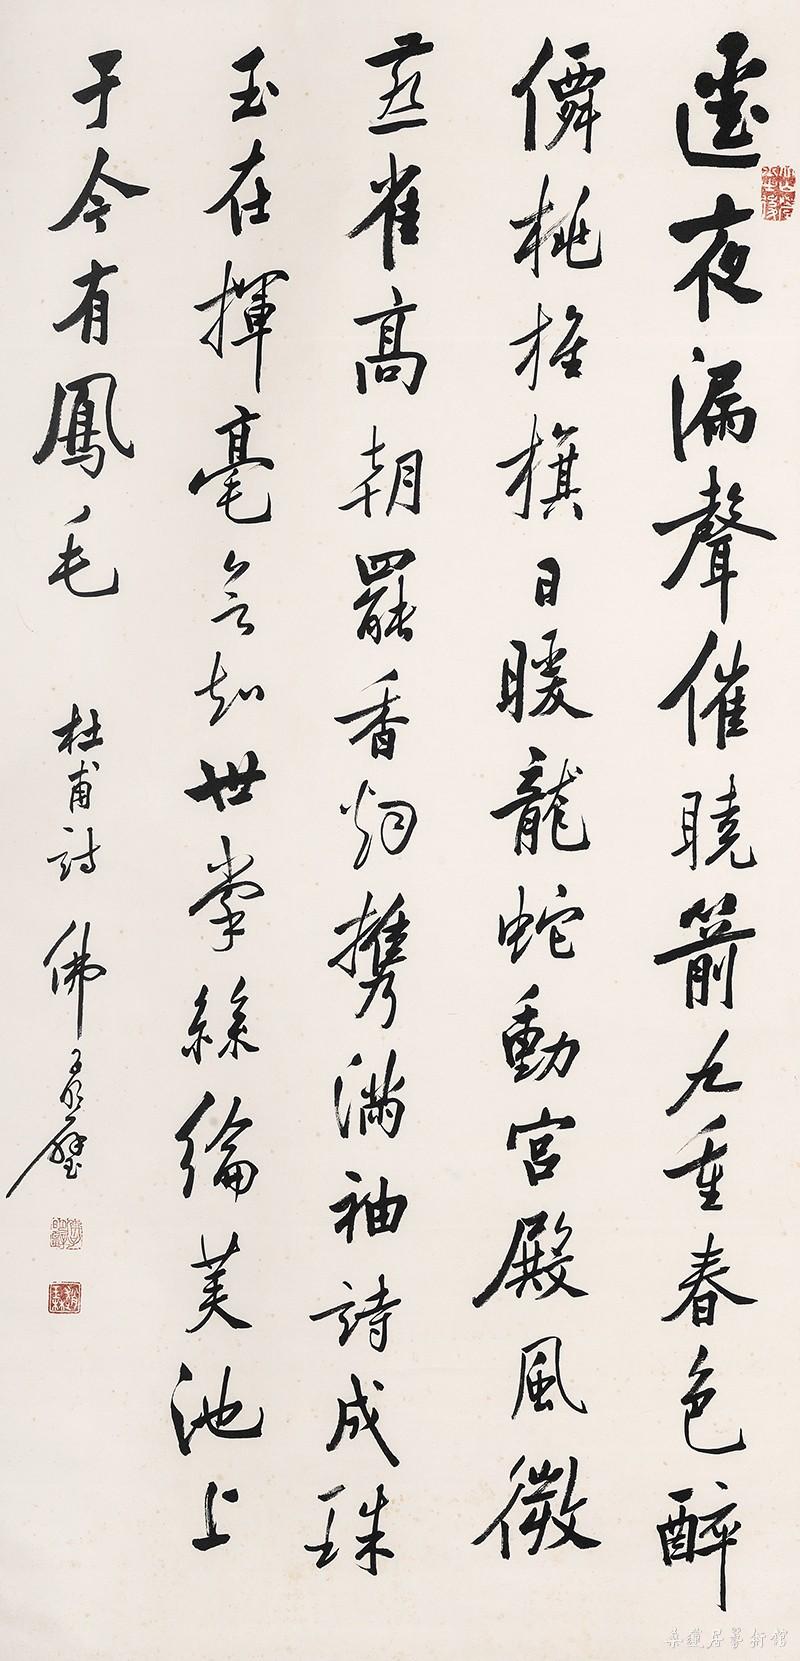 夜漏聲催曉箭九重春色醉
僊桃旌旗日暖龍蛇動宮殿風微
燕雀高朝罷香烟携滿袖詩成珠
玉在揮毫欲知世掌絲綸美池上
于今有鳳毛
杜甫詩 佛
蓮居藝術館